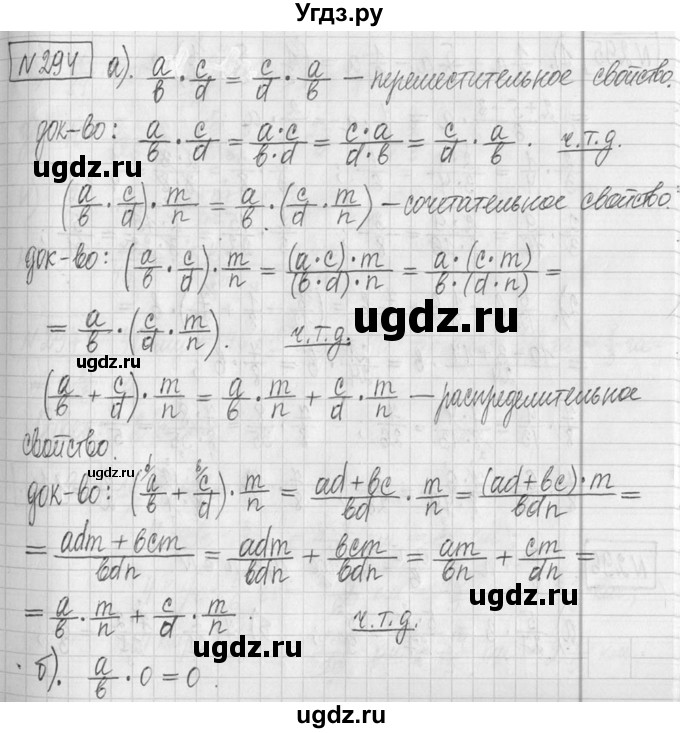 Угдз.ру
N294 а). a/в · c/d = c/d · a/в – переместительное свойство.
док-во: a/в · c/d = a·c/в·d = c·a/d·в = c/d · a/в . ч.т.д.
ugdz.ru
ugdz.ru
(a/в · c/d) · m/n = a/в · (c/d · m/n) – сочетательное свойство.
док-во: (a/в · c/d) · m/n = (a·c)·m/(в·d)·n = a·(c·m)/в·(d·n) =
= a/в · (c/d · m/n). ч.т.д.
ugdz.ru
ugdz.ru
(a/в + c/d) · m/n = a/в · m/n + c/d · m/n – распределительное
свойство.
ugdz.ru
док-во: (a/в + c/d) · m/n = ad+вc/вd · m/n = (ad+вc)·m/вdn =
= adm + вcm/вdn = adm/вdn + вcm/вdn = am/вn + cm/dn =
= a/в · m/n + c/d · m/n . ч.т.д.
ugdz.ru
ugdz.ru
б). a/в · 0 = 0 .
ugdz.ru
ugdz.ru